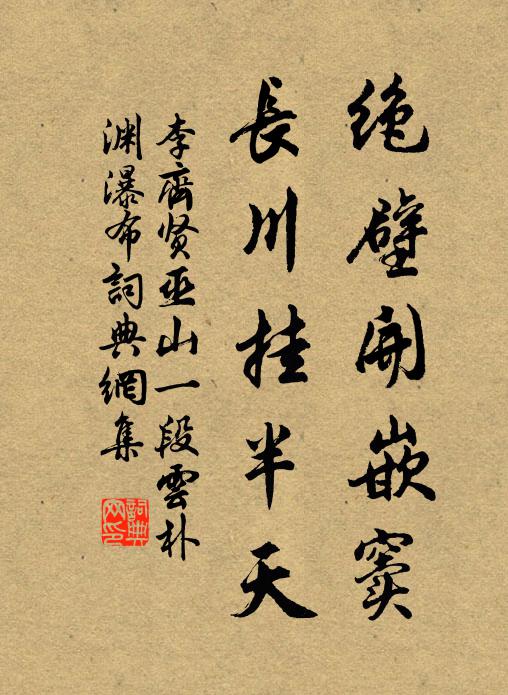 绝壁開嵌竇
長川挂半天
李齊贤巫山一段雲朴
渊瀑布詞典網集
詞典网印